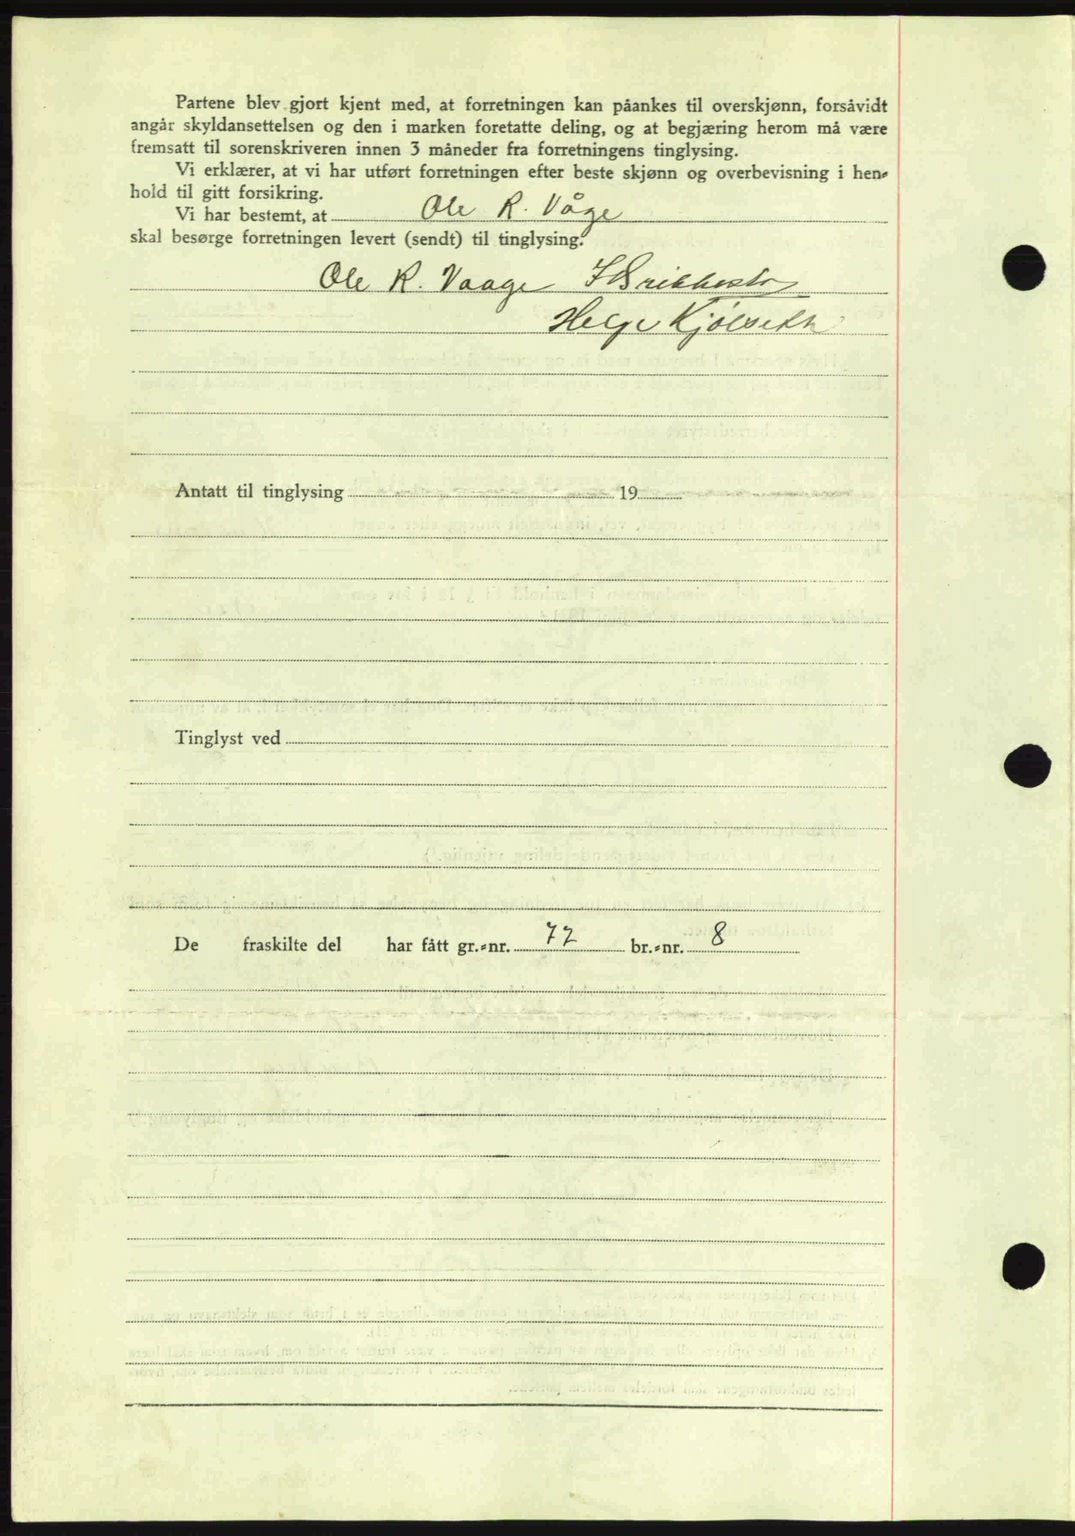 Partene blev gjort kjent med, at forretningen kan påankes til overskjønn, forsåvidt
angår skyldansettelsen og den i marken foretatte deling, og at begjæring herom må være
fremsatt til sorenskriveren innen 3 måneder fra forretningens tinglysing.
Vi erklærer, at vi har utført forretningen efter beste skjønn og overbevisning i hen-
hold til gitt forsikring.
Vi har bestemt, at Ole R. Våge
skal besørge forretningen levert (sendt) til tinglysing.
Ole R. Vaage
Helge Kjølseth
Antatt til tinglysing 19
Tinglyst ved
De fraskilte del har fått gr.-nr. 72 br.-nr. 8